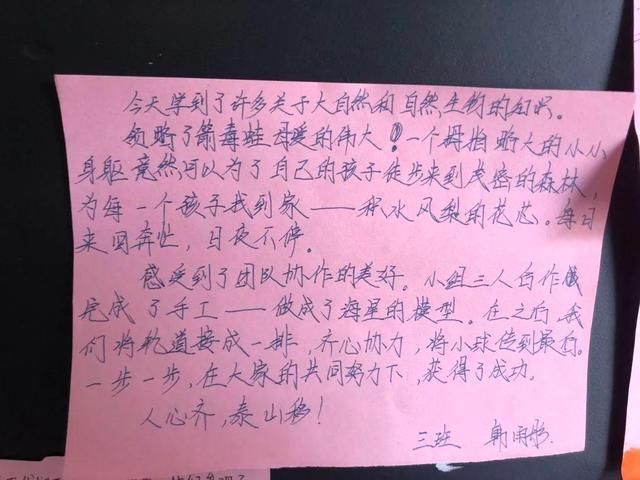 今天学到了许多关于大自然和自然生物的知识。
领略了箭毒蛙母爱的伟大！一个拇指略大的小小
身躯竟然可以为了自己的孩子徒步来到茂密的森林，
为每一个孩子找到家——积水凤梨的花芯。每日
来回奔忙，日夜不停。
感受到了团队协作的美好。小组三人合作
完成了手工——做成了海星的模型。在之后，我
们将轨道接成一排，齐心协力，将小球传到最右。
一步一步，在大家的共同努力下，获得了成功。
人心齐，泰山移！
三班 韩雨彤